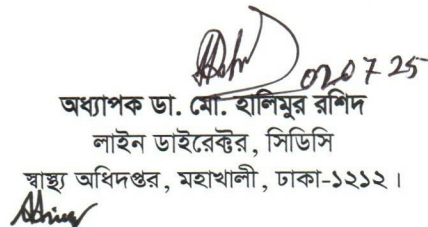 020725
অধ্যাপক ডা. মো. হালিমুর রশিদ
লাইন ডাইরেক্টর, সিডিসি
স্বাস্থ্য অধিদপ্তর, মহাখালী, ঢাকা-১২১২।